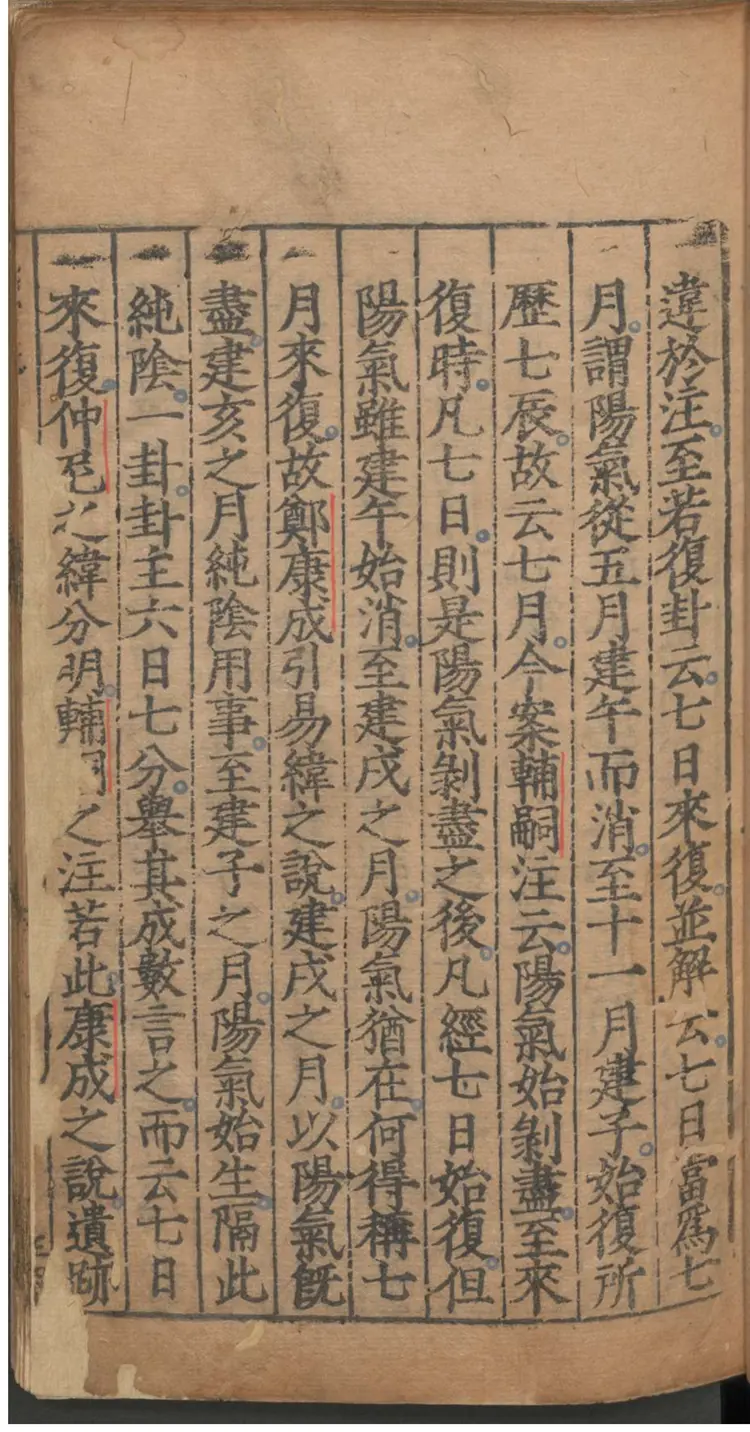 違於注至若復卦云七日來復並解云七日當爲七
月謂陽氣從五月建午而消至十一月建子始復所
歷七辰故云七月今案輔嗣注云陽氣始剝盡至來
復時凡七日則是陽氣剝盡之後凡經七日始復但
陽氣雖建午始消至建戌之月陽氣猶在何得稱七
月來復故鄭康成引易緯之說建戌之月以陽氣旣
盡建亥之月純陰用事至建子之月陽氣始生隔此
純陰一卦卦主六日七分舉其成數言之而云七日
來復仲尼之緯分明輔嗣之注若此康成之說遺跡